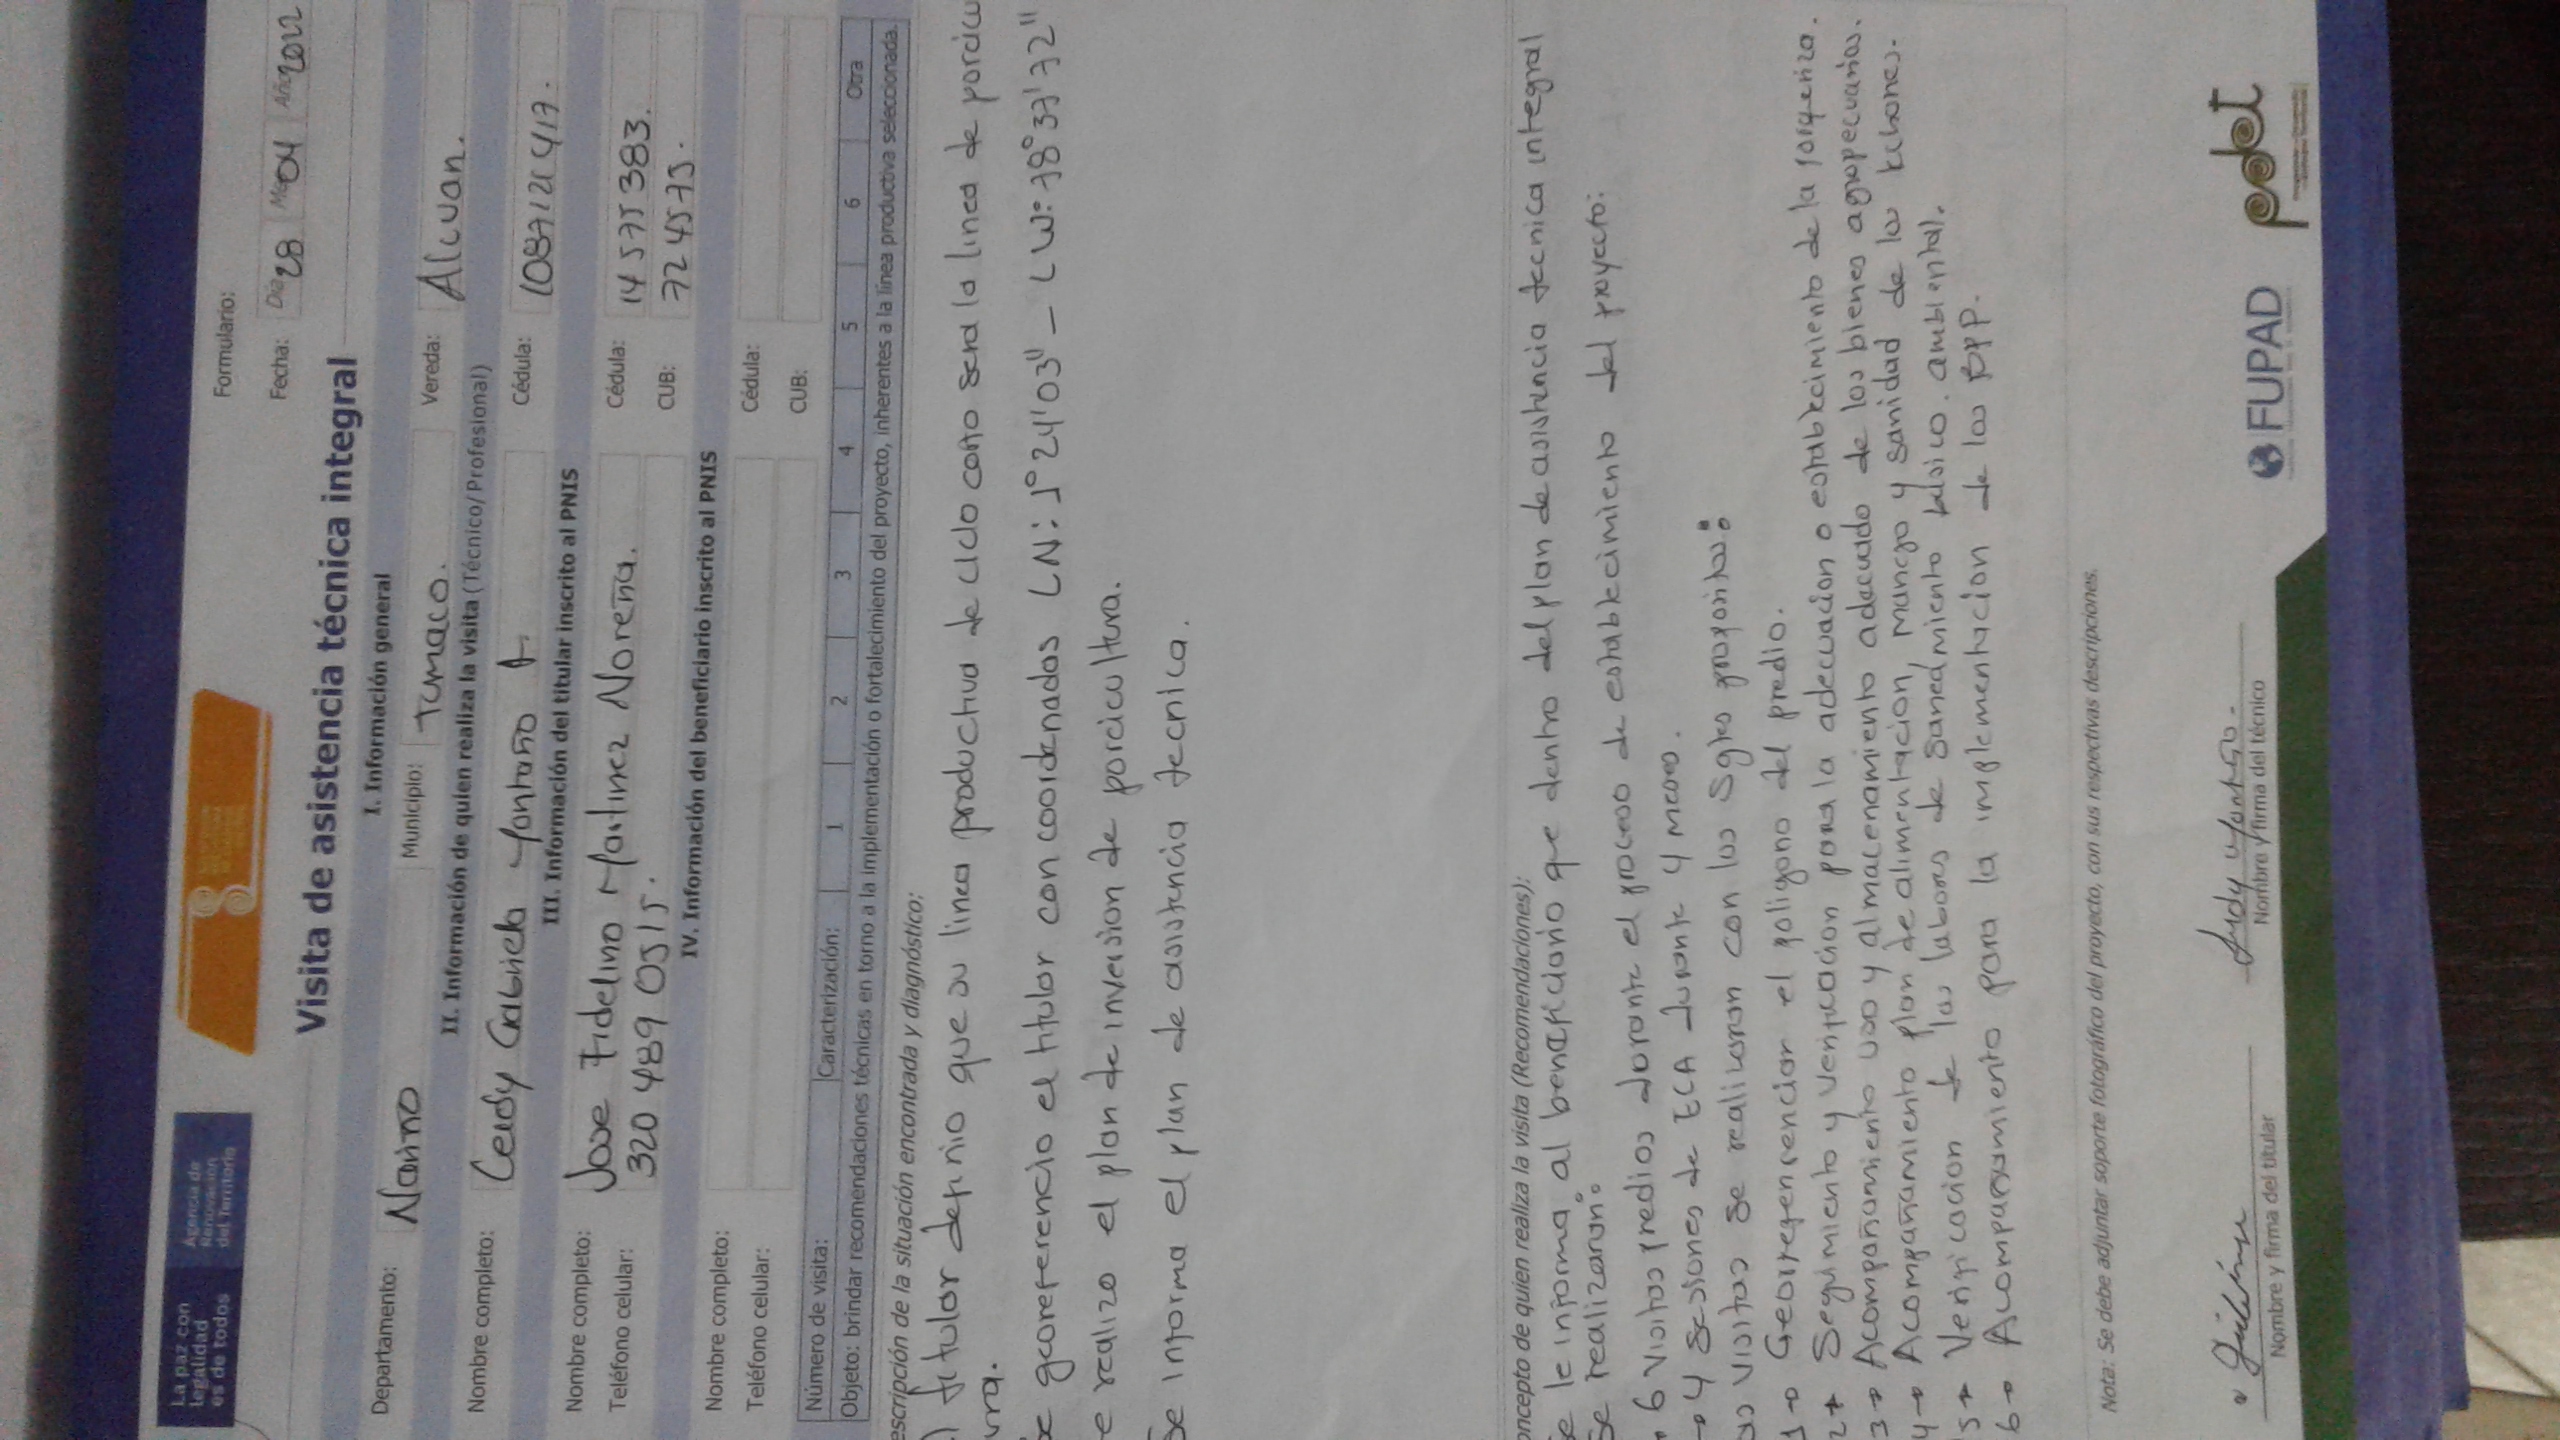 La paz con
legalidad
es de todos
Agencia de
Renovación
del Territorio
Formulario:
Fecha: Día 28 Mes 04 Año 2022
Visita de asistencia técnica integral
I. Información general
Departamento: Nariño Municipio: Tumaco. Vereda: Alcuan.
II. Información de quien realiza la visita (Técnico/ Profesional)
Nombre completo: Leidy Gabriela Montaño A Cédula: 1087121417.
III. Información del titular inscrito al PNIS
Nombre completo: Jose Fidelino Martinez Noreña. Cédula: 14 575 383.
Teléfono celular: 320 489 0515. CUB: 7245 73.
IV. Información del beneficiario inscrito al PNIS
Nombre completo: Cédula:
Teléfono celular: CUB:
Número de visita: Caracterización: 1 2 3 4 5 6 Otra
Objeto: brindar recomendaciones técnicas en torno a la implementación o fortalecimiento del proyecto, inherentes a la línea productiva seleccionada.
escripción de la situación encontrada y diagnóstico:
l titular definio que su linea productiva de ciclo corto sera la linea de porcicu
ura.
Se georeferencio el titular con coordenadas LN: 1° 24' 03" - LW: 78° 37' 72"
e realizo el plan de inversion de porcicultura.
Se informa el plan de asistencia tecnica.
oncepto de quien realiza la visita (Recomendaciones):
se le informa al beneficiario que dentro del plan de asistencia tecnica integral
se realizaran:
6 visitas predios durante el proceso de establecimiento del proyecto:
→ 4 sesiones de ECA durante 4 meses.
as visitas se realizaran con los sgtes propositos:
1→ Georreferenciar el poligono del predio.
2→ Seguimiento y verificacion para la adecuacion o establecimiento de la porqueriza.
3→ Acompañamiento uso y almacenamiento adecuado de los bienes agropecuarios.
4→ Acompañamiento plan de alimentacion, manejo y sanidad de los lechones.
5→ Verificacion de las labores de saneamiento basico. ambiental.
6→ Acompañamiento para la implementacion de las BPP.
Nota: Se debe adjuntar soporte fotográfico del proyecto, con sus respectivas descripciones.
Leidy Montaño.
Nombre y firma del titular Nombre y firma del técnico
FUPAD
pdet